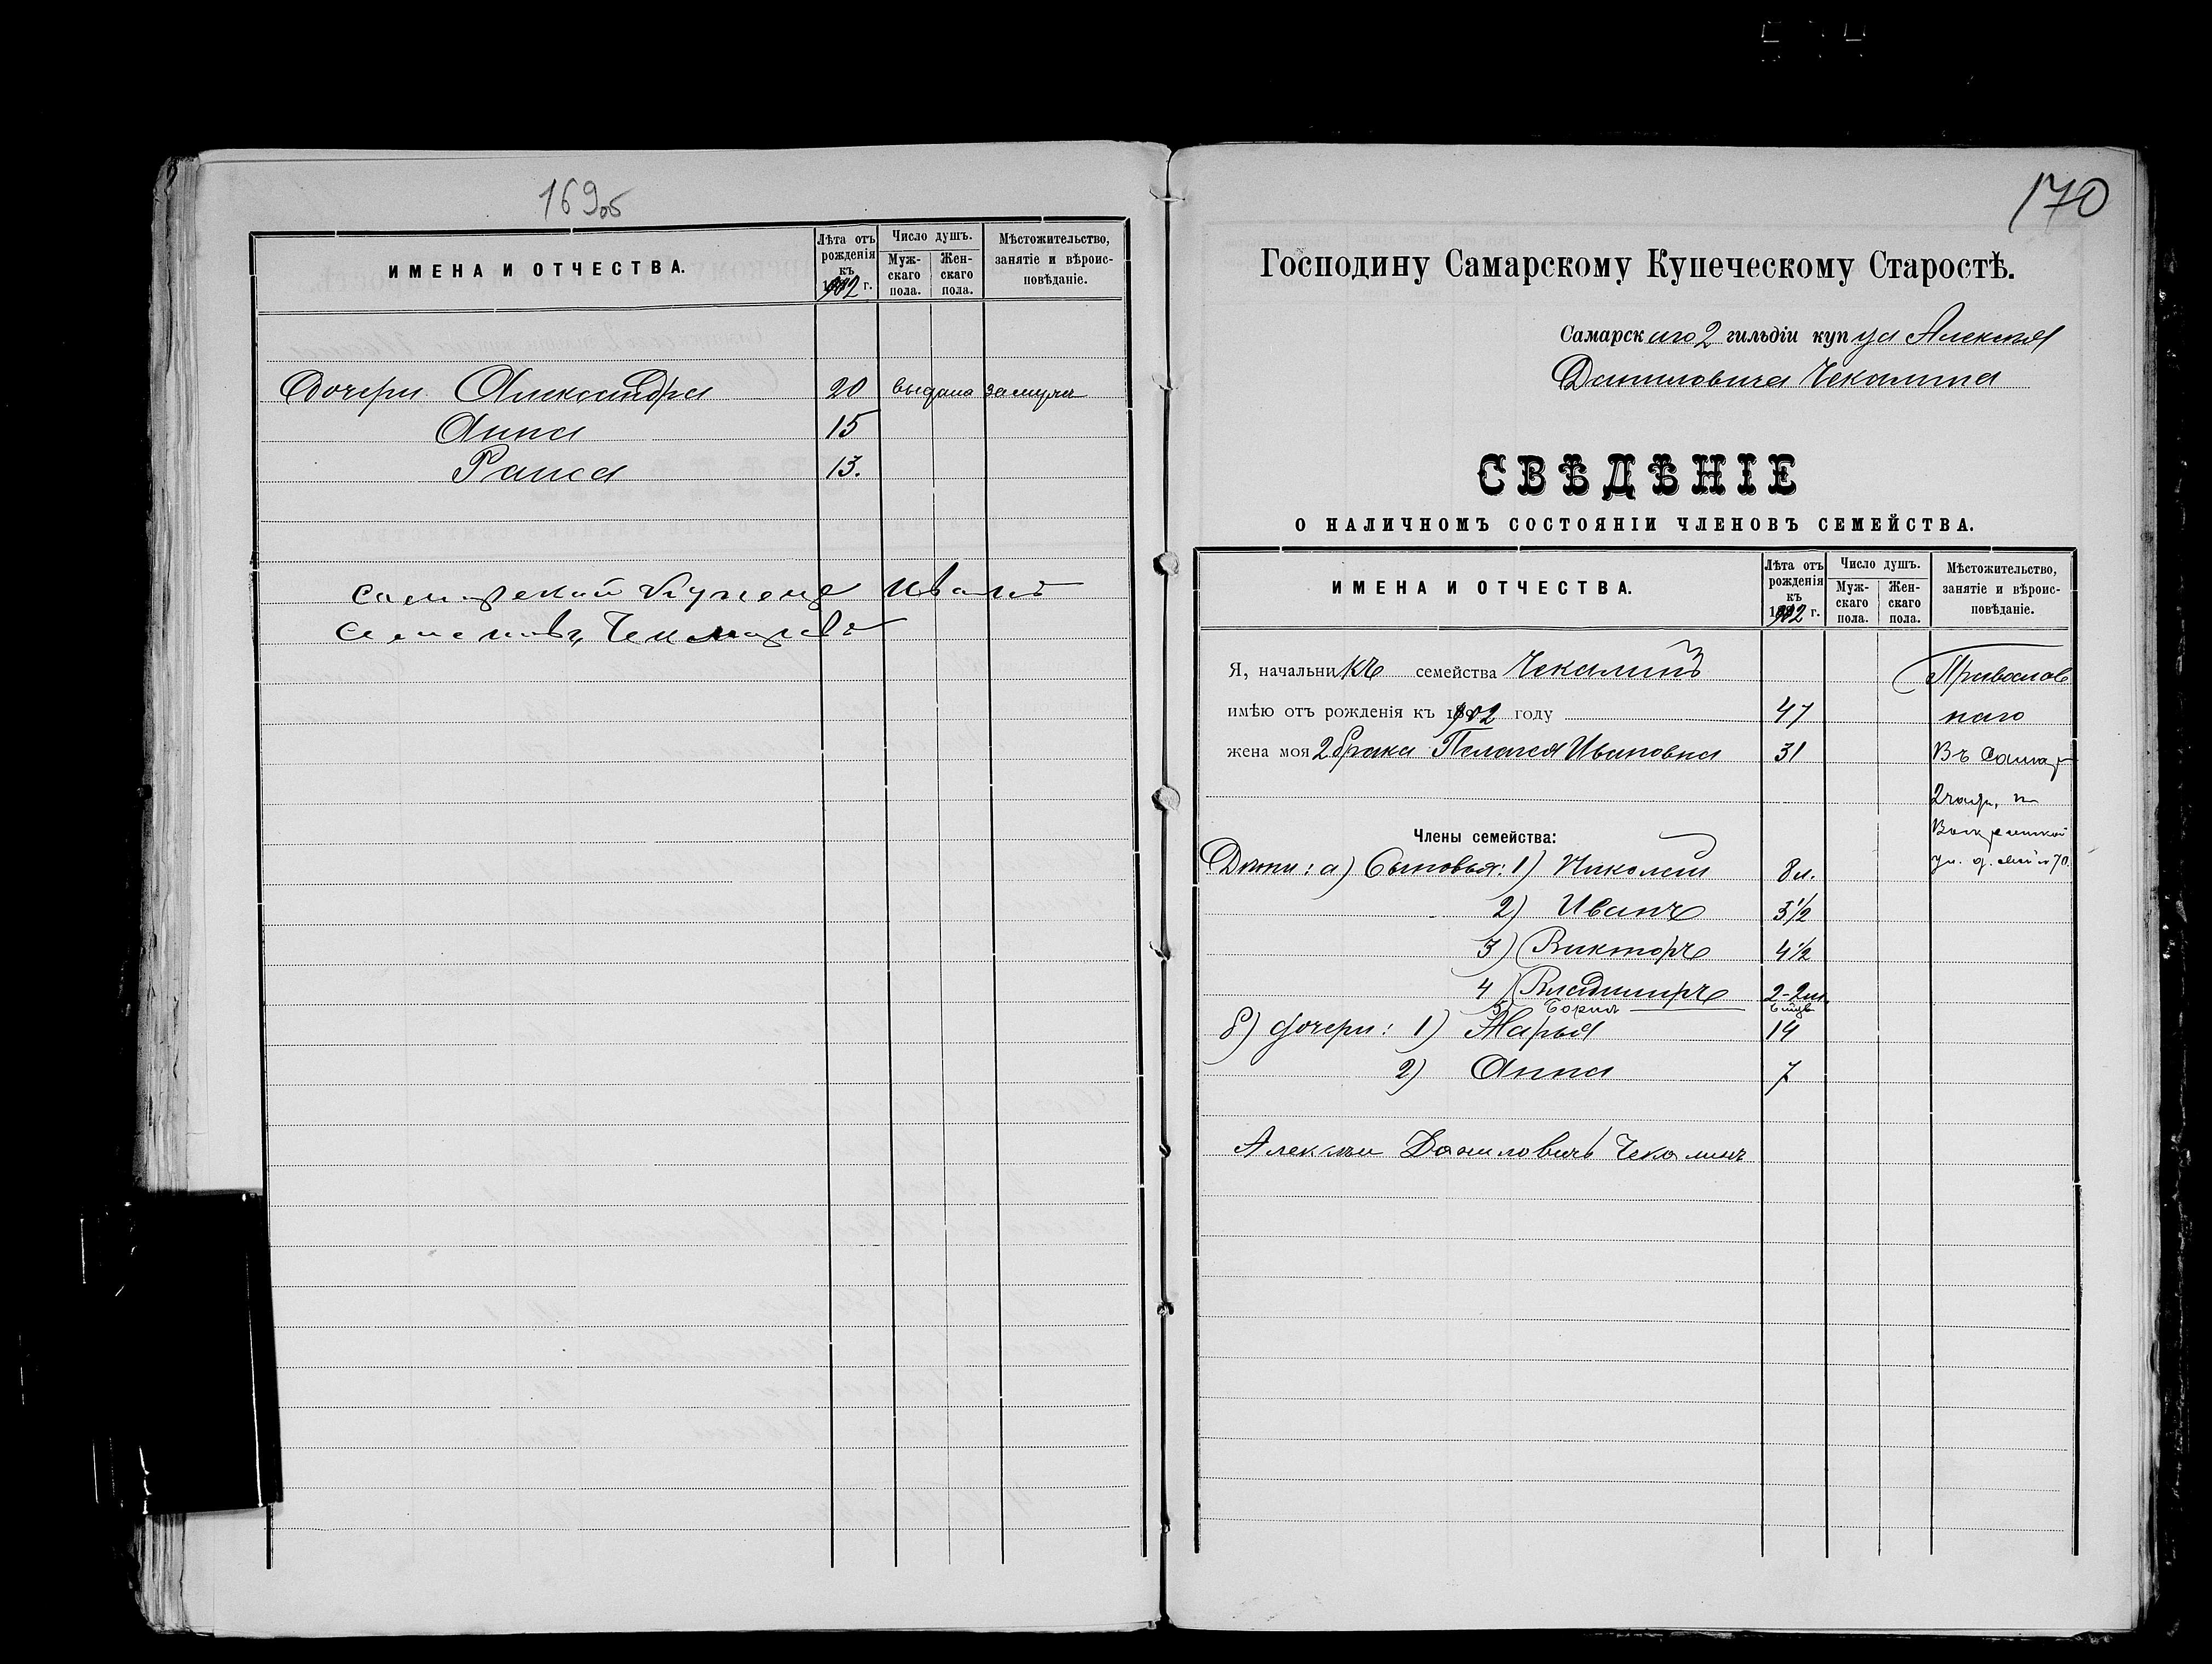 169об
ИМЕНА И ОТЧЕСТВА.
Лѣта отъ рожденія къ 1902 г.
Число душъ.
Муж-скаго пола.
Жен-скаго пола.
Мѣстожительство, занятіе и вѣроис-повѣданіе.
Дочери Александра 20 выдана замужъ
Анна 15
Раиса 13.
Самарский Купецъ Иванъ
170
Господину Самарскому Купеческому Старостѣ.
Самарскаго 2 гильдіи купца Алексѣя
Даниловича Чекалина
СВѢДѢНІЕ
О НАЛИЧНОМЪ СОСТОЯНІИ ЧЛЕНОВЪ СЕМЕЙСТВА.
ИМЕНА И ОТЧЕСТВА.
Лѣта отъ рожденія къ 1902 г.
Число душъ.
Муж-скаго пола.
Жен-скаго пола.
Мѣстожительство, занятіе и вѣроис-повѣданіе.
Я, начальникъ семейства Чекалинъ Православ
имѣю отъ рожденія къ 1902 году 47 наго
жена моя 2 брака Пелагея Ивановна 31 Въ Самар
2 части, п
Члены семейства:
Дѣти: а) Сыновья: 1) Николай 8 л.
ул. д. № 70.
2) Иванъ 3 1/2
3) Викторъ 4 1/2
4) Владимиръ 2-2 м.
5) Борисъ
б) дочери: 1) Марья 14
2) Анна 7
Алексѣй Даниловичъ Чекалинъ